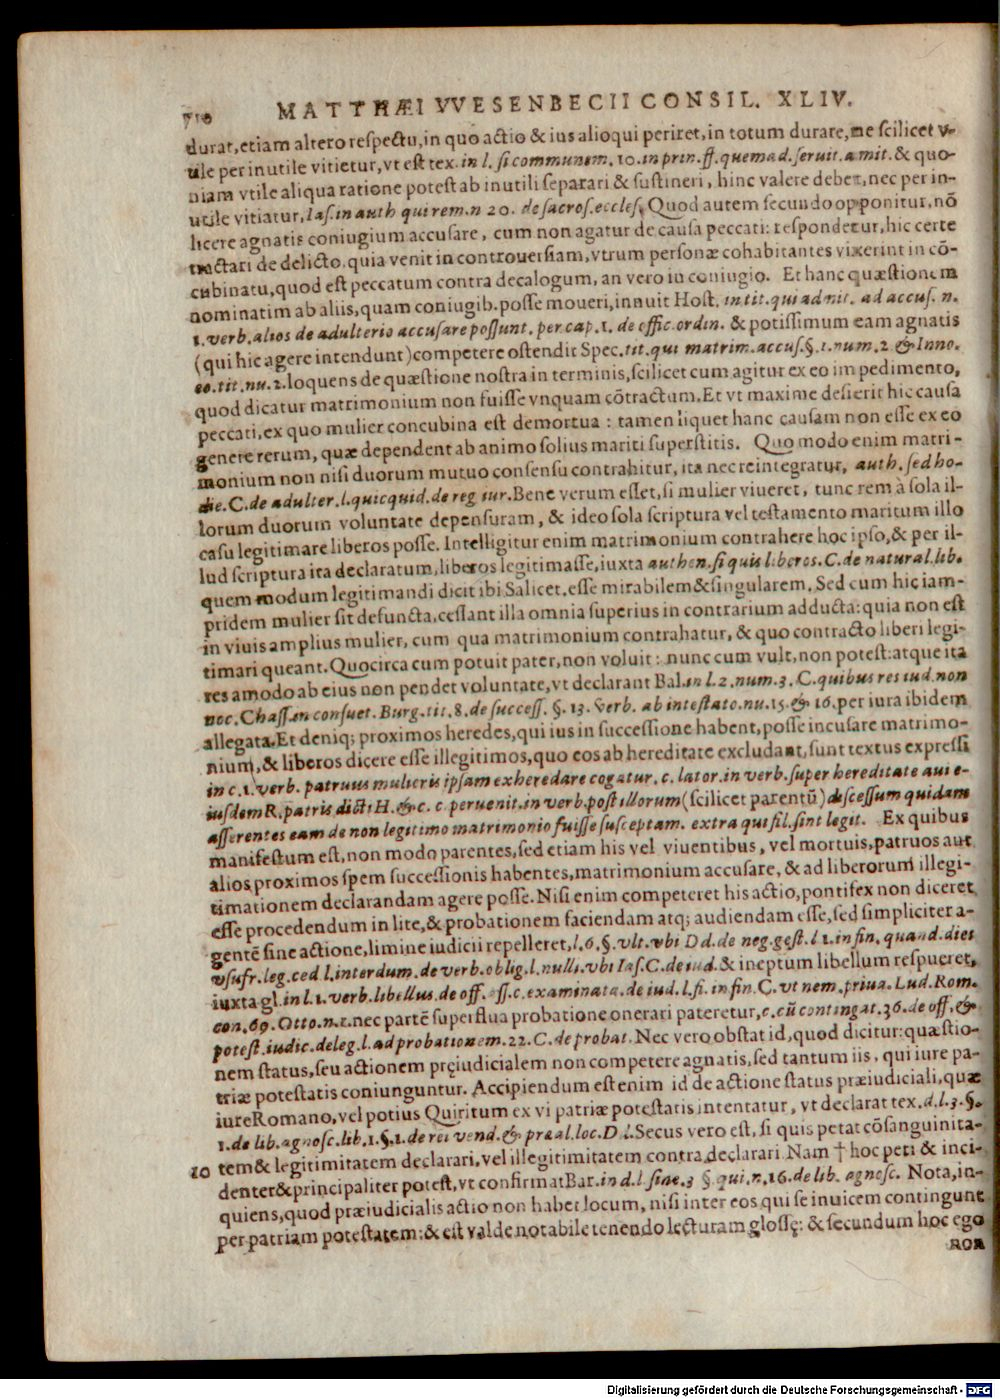 710 MATTHÆI VVESENBECII CONSIL. XLIV.
durat, etiam altero respectu, in quo actio & ius alioqui periret, in totum durare, ne scilicet v-
tile per inutile vitietur, vt est tex. in l. si communem. 10. in prin. ff. quemad. seruit. amit. & quo-
niam vtile aliqua ratione potest ab inutili separari & sustineri, hinc valere debet, nec per in-
utile vitiatur, Ias. in auth qui rem. n 20. de sacros. eccles. Quod autem secundo opponitur, nō
licere agnatis coniugium accusare, cum non agatur de causa peccati: respondetur, hic certe
tractari de delicto, quia venit in controuersiam, vtrum personæ cohabitantes vixerint in cō-
cubinatu, quod est peccatum contra decalogum, an vero in coniugio. Et hanc quæstionem
nominatim ab aliis, quam coniugib. posse moueri, innuit Host. in tit. qui admit. ad accus. n.
1. verb. alios de adulterio accusare possunt. per cap. 1. de offic. ordin. & potissimum eam agnatis
(qui hic agere intendunt) competere ostendit Spec. tit. qui matrim. accus. §. 1. num. 2. & Inno.
eo. tit. nu. 2. loquens de quæstione nostra in terminis, scilicet cum agitur ex eo impedimento,
quod dicatur matrimonium non fuisse vnquam cōtractum. Et vt maxime desierit hic causa
peccati, ex quo mulier concubina est demortua: tamen liquet hanc causam non esse ex eo
genere rerum, quæ dependent ab animo solius mariti superstitis. Quo modo enim matri-
monium non nisi duorum mutuo consensu contrahitur, ita nec reintegratur, auth. sed ho-
die. C. de adulter. l. quicquid. de reg iur. Bene verum esset, si mulier viueret, tunc rem à sola il-
lorum duorum voluntate depensuram, & ideo sola scriptura vel testamento maritum illo
casu legitimare liberos posse. Intelligitur enim matrimonium contrahere hoc ipso, & per il-
lud scriptura ita declaratum, liberos legitimasse, iuxta authen. si quis liberos. C. de natural. lib.
quem modum legitimandi dicit ibi Salicet. esse mirabilem & singularem. Sed cum hic iam-
pridem mulier sit defuncta, cessant illa omnia superius in contrarium adducta: quia non est
in viuis amplius mulier, cum qua matrimonium contrahatur, & quo contracto liberi legi-
timari queant. Quocirca cum potuit pater, non voluit: nunc cum vult, non potest: atque ita
res amodo ab eius non pendet voluntate, vt declarant Bal. in l. 2. num. 3. C. quibus res iud. non
noc. Chass. in consuet. Burg. tit. 8. de success. §. 13. verb. ab intestato. nu. 15. & 16. per iura ibidem
allegata. Et deniq; proximos heredes, qui ius in successione habent, posse incusare matrimo-
nium, & liberos dicere esse illegitimos, quo eos ab hereditate excludant, sunt textus expressi
in c. 1. verb. patruus mulieris ipsam exheredare cogatur. c. lator. in verb. super hereditate aui e-
iusdem R. patris dicti H. & c. c. peruenit. in verb. post illorum (scilicet parentū) discessum quidam
asserentes eam de non legitimo matrimonio fuisse susceptam. extra qui fil. sint legit. Ex quibus
manifestum est, non modo parentes, sed etiam his vel viuentibus, vel mortuis, patruos aut
alios proximos spem successionis habentes, matrimonium accusare, & ad liberorum illegi-
timationem declarandam agere posse. Nisi enim competeret his actio, pontifex non diceret
esse procedendum in lite, & probationem faciendam atq; audiendam esse, sed simpliciter a-
gentē sine actione, limine iudicii repelleret, l. 6. §. vlt. vbi Dd. de neg. gest. l 1. in fin. quand. dies
vsufr. leg. ced l. interdum. de verb. oblig. l. nulli. vbi Ias. C. de iud. & ineptum libellum respueret,
iuxta gl. in l. 1. verb. libellus. de off. ass. c. examinata. de iud. l. fi. in fin C. vt nem. priua. Lud. Rom.
con. 69. Otto. n. 1. nec partē superflua probatione onerari pateretur, c. cū contingat. 36. de off. &
potest. iudic. deleg. l. ad probationem. 22. C. de probat. Nec vero obstat id, quod dicitur: quæstio-
nem status, seu actionem pręiudicialem non competere agnatis, sed tantum iis, qui iure pa-
triæ potestatis coniunguntur. Accipiendum est enim id de actione status præiudiciali, quæ
iure Romano, vel potius Quiritum ex vi patriæ potestatis intentatur, vt declarat tex. d. l. 3. §.
1. de lib. agnosc. lib. 1. §. 1. de rei vend. & præal. loc. D l. Secus vero est, si quis petat cōsanguinita-
10 tem & legitimitatem declarari, vel illegitimitatem contra declarari. Nam † hoc peti & inci-
denter & principaliter potest, vt confirmat Bar. in d. l sine. 3 §. qui. n. 16. de lib. agnosc. Nota, in-
quiens, quod præiudicialis actio non habet locum, nisi inter eos qui se inuicem contingunt
per patriam potestatem: & est valde notabile tenendo lecturam glossę: & secundum hoc ego
non
Digitalisierung gefördert durch die Deutsche Forschungsgemeinschaft - DFG